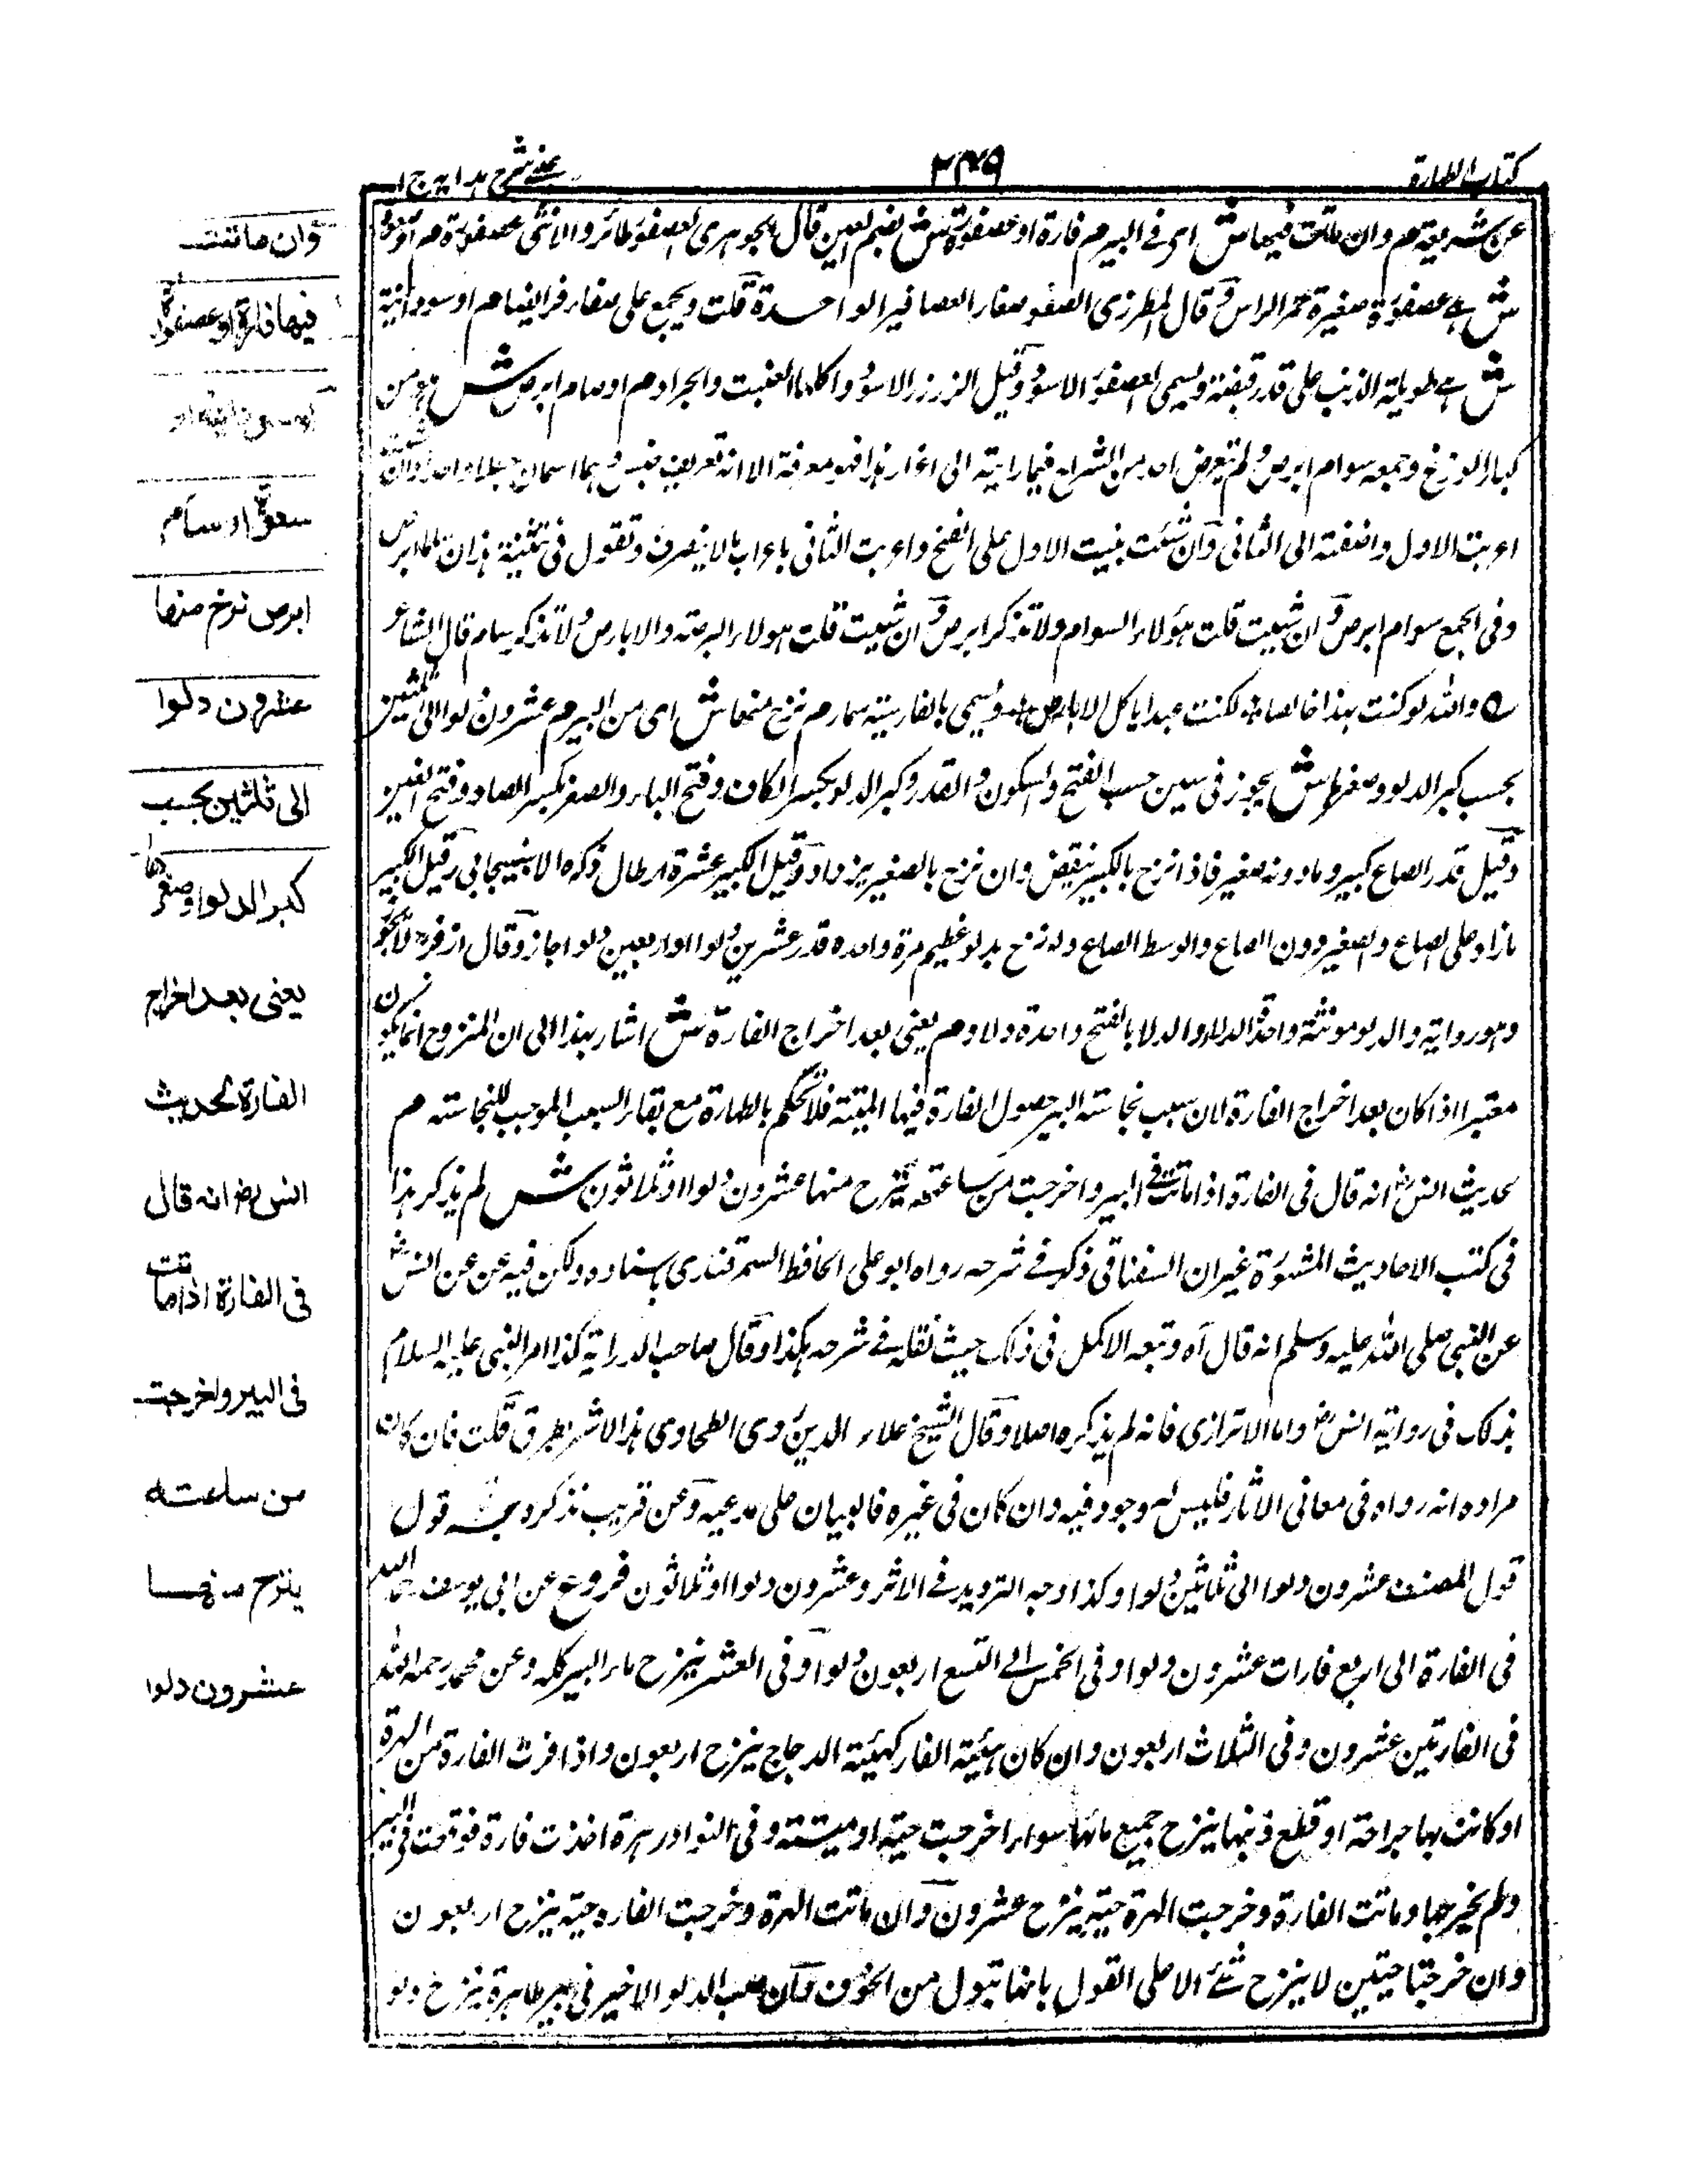 كتاب الطهارة
٢٤٩
عینی شرح ہدایہ ج ١
عن شريعة م وان ماتت فيها ش اى فى البير م فارة او عصفورة ش بضم العين قال الجوهرى العصفور طائر والانثى عصفورة م او صعوة
ش هى عصفورة صغيرة حمر الراس وقال المطرزى الصعو صغار العصافير الواحدة قلت ويجمع على صعاء م او سودانية
ش هى طويلة الذنب على قدر قبضة ويسمى العصفور الاسود وقيل الزرزر الاسود واكلها العنب والجراد م او سام ابرص ش هو من
كبار الوزغ وجمعه سوام ابرص ولم يتعرض احد من الشراح فيما رايته الى هذا فهو معرفة الا انه تعريف جنس وهما اسمان جعلا واحدا ان شئت
اعربت الاول واضفته الى الثانى وان شئت بنيت الاول على الفتح واعربت الثانى باعراب مالا ينصرف وتقول فى تثنية هذان ساما ابرص
وفى الجمع سوام ابرص وان شيت قلت هؤلاء السوام ولا تذكر ابرص وان شيت قلت هولاء البرصة والابارص ولا تذكر سام قال الشاعر
ه والله لو كنت بهذا خالصا * لكنت عبدا ياكل الابارصا * وتسمى بالفارسية سمار م نزح منها ش اى من البير م عشرون دلوا الى ثلثين
بحسب كبر الدلو وصغرها ش يجوز فى سين حسب الفتح والسكون والقدر وكبر الدلو بكسر الكاف وفتح الباء والصغر بكسر الصاد وفتح الغين
وقيل قدر الصاع كبير وما دونه صغير فاذا نزح بالكبير ينقص وان نزح بالصغير يزداد وقيل الكبير عشرة ارطال ذكره الاسبيجابى وقيل الكبير
ما زاد على الصاع والصغير دون الصاع والوسط الصاع ولو نزح بدلو عظيم مرة واحدة قدر عشرين دلوا او اربعين دلوا جاز وقال زفر لا يجوز
وهو رواية والدلو مونثة واحد الدلاء والدلا بالفتح واحدة دلاو م يعنى بعد اخراج الفارة ش اشار بهذا الى ان المنزوح انما يكون
معتبرا اذا كان بعد اخراج الفارة لان سبب نجاسة البير حصول الفارة فيها الميتة فلا تحكم بالطهارة مع بقاء السبب الموجب للنجاسة م
لحديث انس رض انه قال فى الفارة اذا ماتت فى البير واخرجت من ساعته ينزح منها عشرون دلوا او ثلاثون ش لم يذكر هذا
فى كتب الاحاديث المشهورة غير ان السغناقى ذكر فى شرحه رواه ابو على الحافظ السمرقندى باسناده ولكن فيه عن عن انس رض
عن النبى صلى الله عليه وسلم انه قال آه وتبعه الاكمل فى ذلك حيث نقله فى شرحه هكذا وقال صاحب الدراية كذا امر النبى عليه السلام
بذلك فى رواية انس رض واما الاترازى فانه لم يذكره اصلا وقال الشيخ علاء الدين روى الطحاوى هذا الاثر بطرق قلت فان كان
مراده انه رواه فى معانى الاثار فليس له وجود فيه وان كان فى غيره فالبيان على مدعيه وعن قريب نذكر وجه قول
قول المصنف عشرون دلوا الى ثلاثين دلوا وكذا وجه الترديد فى الاثر وعشرون دلوا او ثلاثون فروع عن ابى يوسف رحمه الله
فى الفارة الى اربع فارات عشرون دلوا وفى الخمس الى التسع اربعون دلوا وفى العشر ينزح ماء البير كله وعن محمد رحمه الله
فى الفارتين عشرون وفى الثلاث اربعون وان كان هيئة الفار كهيئة الدجاج ينزح اربعون واذا فرت الفارة من الهرة
او كانت بها جراحة او قطع ذنبها ينزح جميع مائها سواء اخرجت حية او ميتة وفى النوادر هرة اخذت فارة فوقعت فى البير
ولم يخرجها وماتت الفارة وخرجت الهرة حية ينزح عشرون وان ماتت الهرة وخرجت الفارة حية ينزح اربعون
وان خرجتا حيتين لا ينزح شئ الا على القول بانها تبول من الخوف وان صب الدلو الاخير فى بير طاهرة ينزح دلو
وان ماتت
فيها فارة او عصفورة
او سودانية او
صعوة او سام
ابرص نزح منها
عشرون دلوا
الى ثلثين بحسب
كبر الدلو وصغرها
يعنى بعد اخراج
الفارة لحديث
انس رض انه قال
فى الفارة اذا ماتت
فى البير واخرجت
من ساعته
ينزح منها
عشرون دلوا